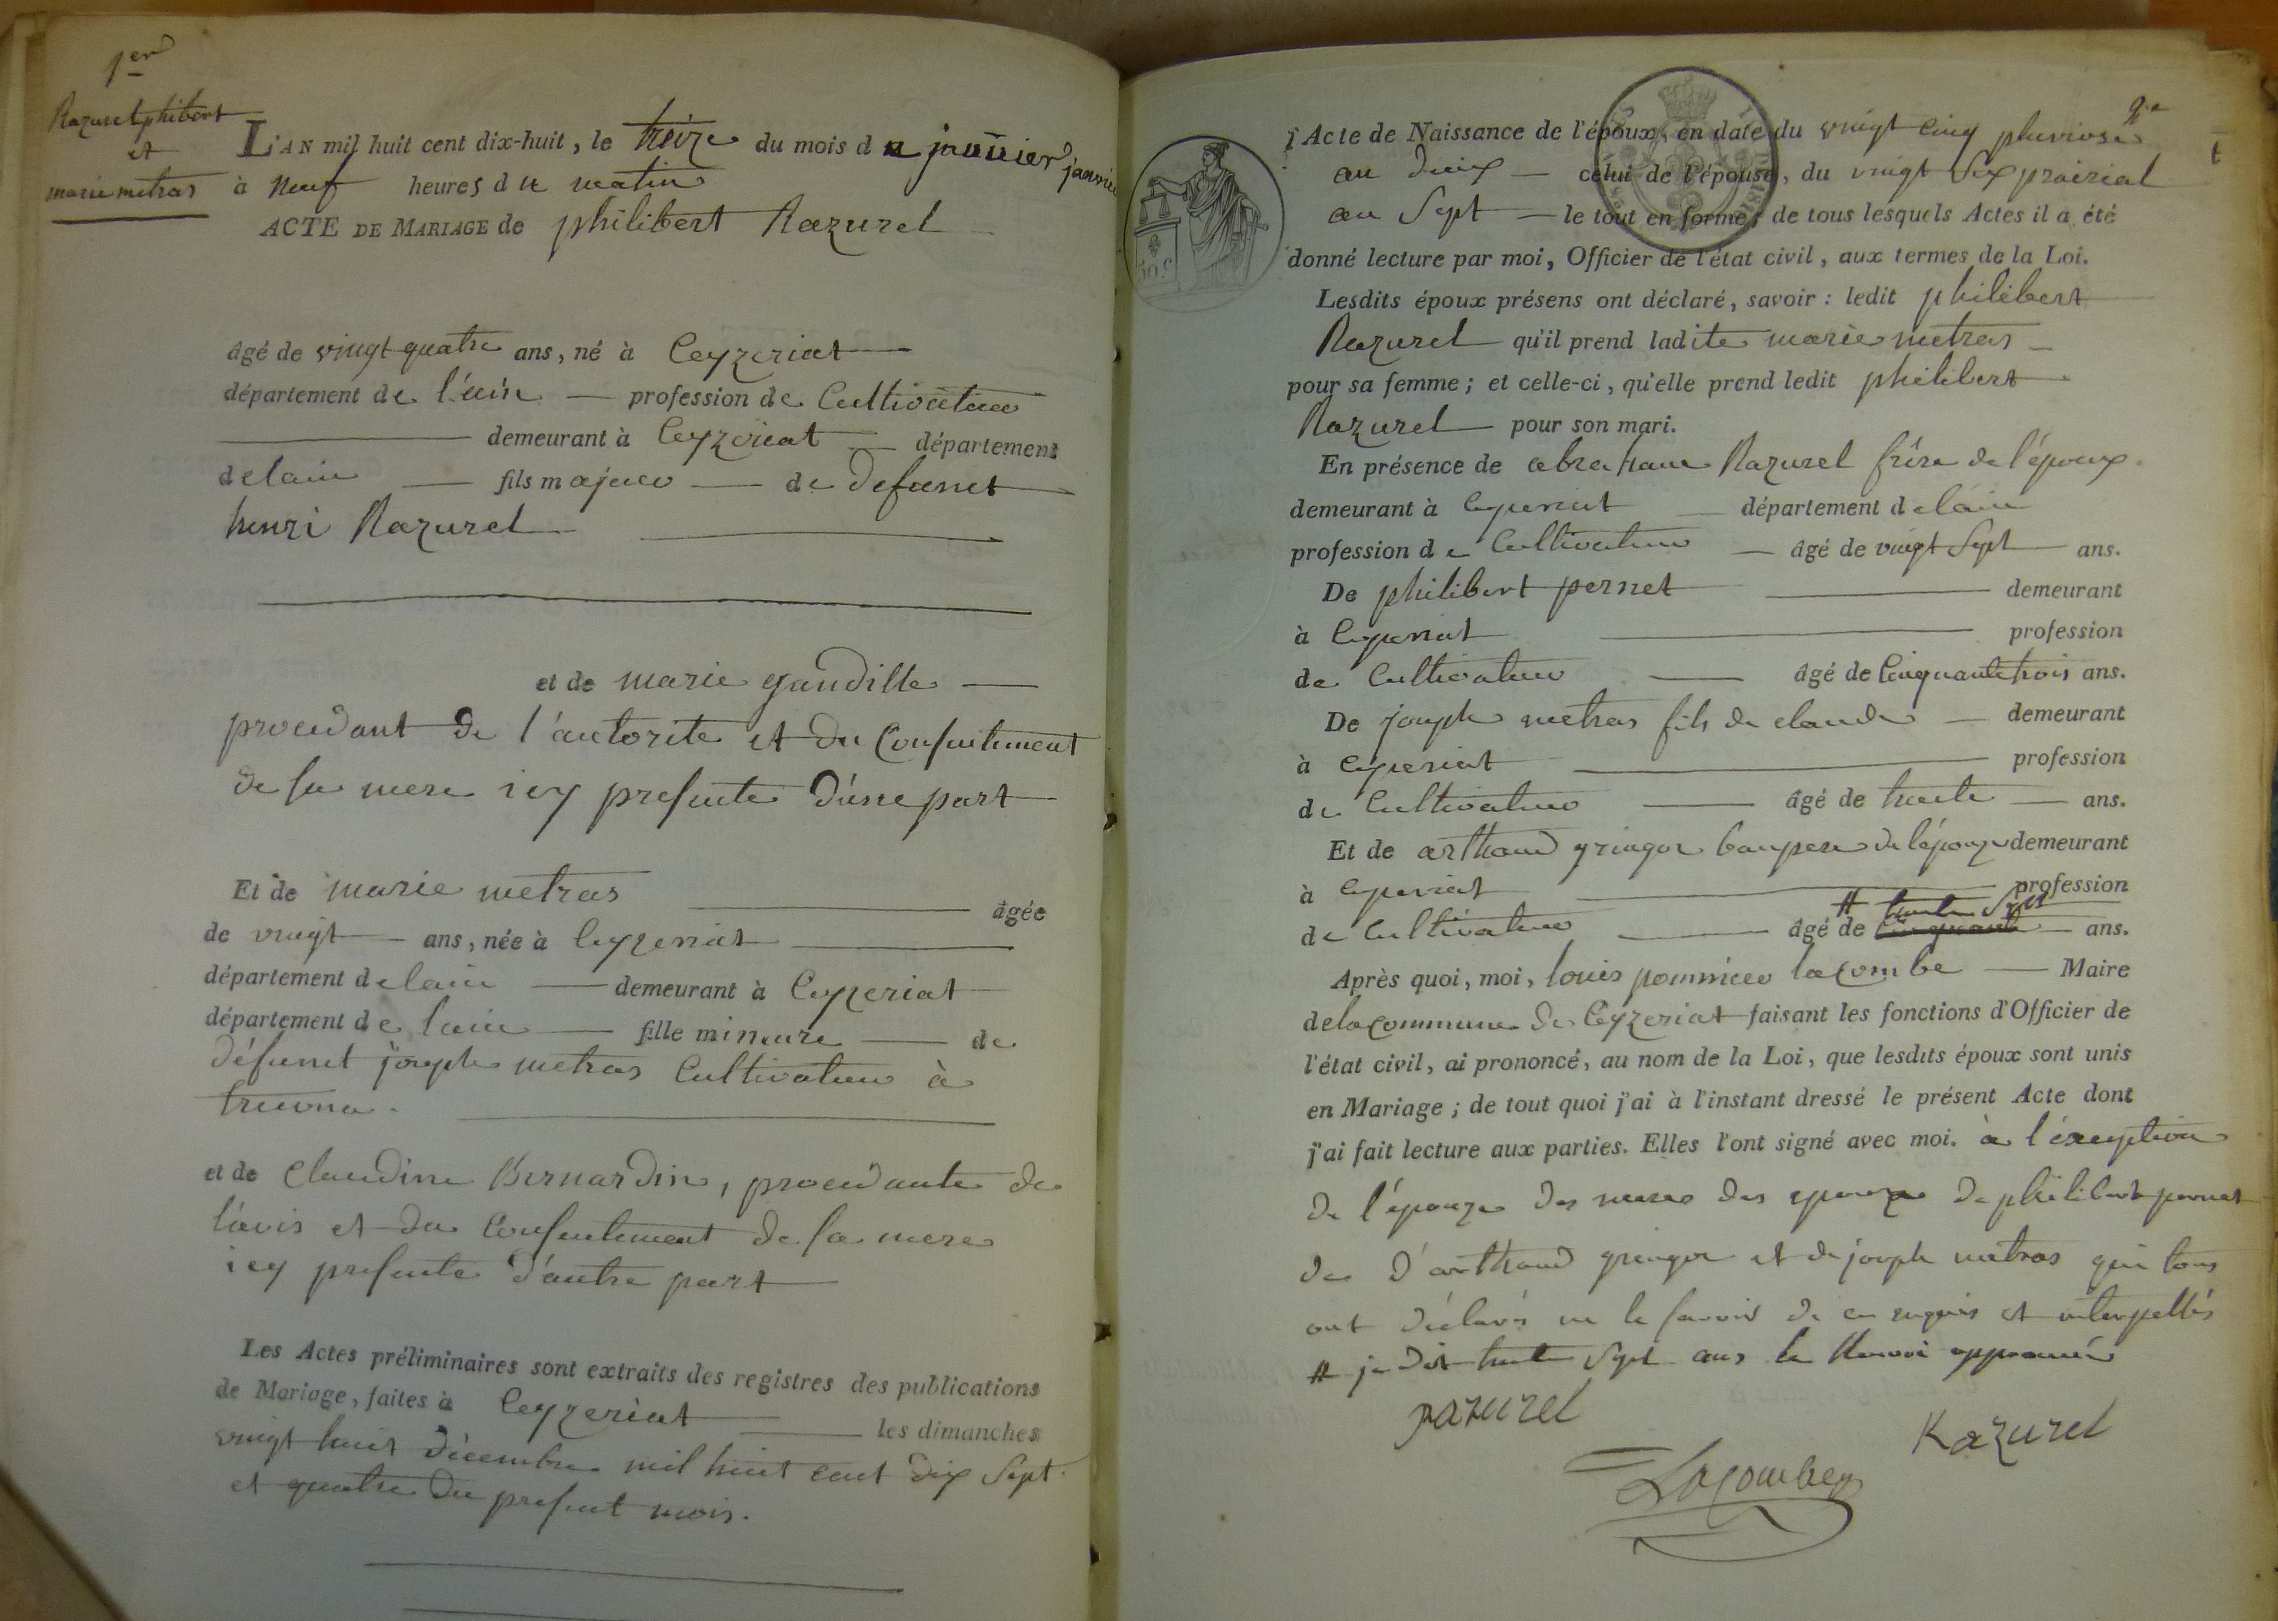 1er
Razurel phibert
et
marie metras
L'AN mil huit cent dix-huit, le treize du mois de janvier janvier
à neuf heures du matin
ACTE DE MARIAGE de philibert Razurel
âgé de vingt quatre ans, né à Ceyzeriat
département de l'ain profession de Cultivateur
demeurant à Ceyzeriat département
de lain fils majeur de defunct
henri Razurel
et de marie gaudille
procedant de l'autorite et du Consentement
de sa mere icy presente d'une part
Et de marie metras âgée
de vingt ans, née à Ceyzeriat
département de lain demeurant à Ceyzeriat
département de lain fille mineure de
défunct joseph metras Cultivateur à
et de Claudine Bernardin, procedante de
l'avis et du Consentement de sa mere
icy presente d'autre part
Les Actes préliminaires sont extraits des registres des publications
de Mariage, faites à Ceyzeriat les dimanches
vingt huit décembre mil huit cent dix Sept
et quatre du present mois.
2e
l'Acte de Naissance de l'époux, en date du vingt cinq pluviose
an deux celui de l'épouse, du vingt Six prairial
an Sept le tout en forme; de tous lesquels Actes il a été
donné lecture par moi, Officier de l'état civil, aux termes de la Loi.
50 C
Lesdits époux présens ont déclaré, savoir : ledit philibert
Razurel qu'il prend ladite marie metras
pour sa femme ; et celle-ci, qu'elle prend ledit philibert
Razurel pour son mari.
En présence de abraham Razurel frère de l'époux
demeurant à Ceyzeriat département de lain
profession de Cultivateur âgé de vingt Sept ans.
De philibert pernet demeurant
à Ceyzeriat profession
de Cultivateur âgé de Cinquante trois ans.
De joseph metras fils de claude demeurant
à Ceyzeriat profession
de Cultivateur âgé de trente ans.
Et de arthaud beaupere de l'épouze demeurant
à Ceyzeriat profession
# trente Sept
de Cultivateur âgé de cinquante ans.
Après quoi, moi, louis pommier lacombe Maire
de la Commune de Ceyzeriat faisant les fonctions d'Officier de
l'état civil, ai prononcé, au nom de la Loi, que lesdits époux sont unis
en Mariage ; de tout quoi j'ai à l'instant dressé le présent Acte dont
j'ai fait lecture aux parties. Elles l'ont signé avec moi. à l'exception
de l'épouze des meres des epouze de philibert pernet
de d'arthaud et de joseph metras qui tous
ont déclarés ne le savoir de ce requis et interpellés
# je dis trente Sept ans le Renvoi approuvé
razurel
Razurel
Lacombe